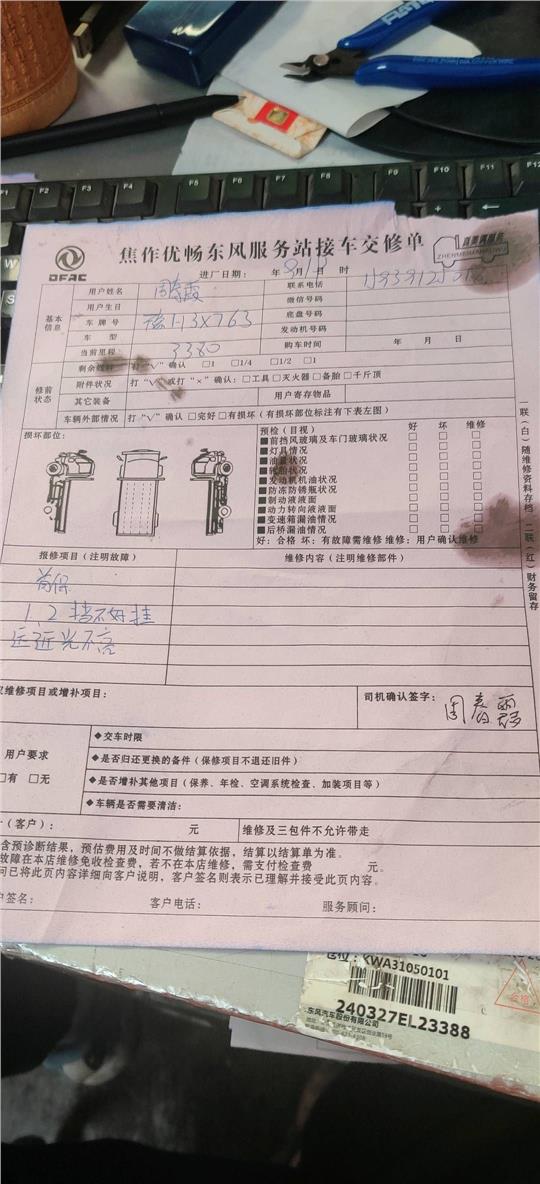 焦作优畅东风服务站接车交修单
DFAC
ZHENMEIWANFUWU
进厂日期： 年 8月 日 时
基本信息
用户姓名 联系电话
用户生日 微信号码
车牌号 底盘号码
车型 发动机号码
当前里程 3380 购车时间 年 月 日
修前状态
打“√”确认 □1 □1/4 □1/2 □1
附件状况 打“√”或打“×”确认：□工具 □灭火器 □备胎 □千斤顶
其它装备 用户寄存物品
车辆外部情况 打“√”确认 □完好 □有损坏（有损坏部位标注有下表左图）
损坏部位：
预检（目视） 好 坏 维修
■前挡风玻璃及车门玻璃状况 □ □ □
■灯具情况 □ □ □
■油量状况 □ □ □
■轮胎状况 □ □ □
■发动机机油状况 □ □ □
■防冻防锈瓶状况 □ □ □
■制动液液面 □ □ □
■动力转向液液面 □ □ □
■变速箱漏油情况 □ □ □
■后桥漏油情况 □ □ □
好：合格 坏：有故障需维修 维修：用户确认维修
一联（白）随维修资料存档 二联（红）财务留存
报修项目（注明故障） 维修内容（注明维修部件）
首保
1、2挡不好挂
远近光不亮
维修项目或增补项目：
司机确认签字：
用户要求
□有 □无
◆交车时限
◆是否归还更换的备件（保修项目不退还旧件）
◆是否增补其他项目（保养、年检、空调系统检查、加装项目等）
◆车辆是否需要清洁：
（客户）： 元 维修及三包件不允许带走
含预诊断结果，预估费用及时间不做结算依据，结算以结算单为准。
故障在本店维修免收检查费，若不在本店维修，需支付检查费 元。
问已将此页内容详细向客户说明，客户签名则表示已理解并接受此页内容。
户签名： 客户电话： 服务顾问：
KWA31050101
240327EL23388
东风汽车股份有限公司
合格
F2 F3 F4 F5 F6 F7 F8 F9 F10 F11 F12
W